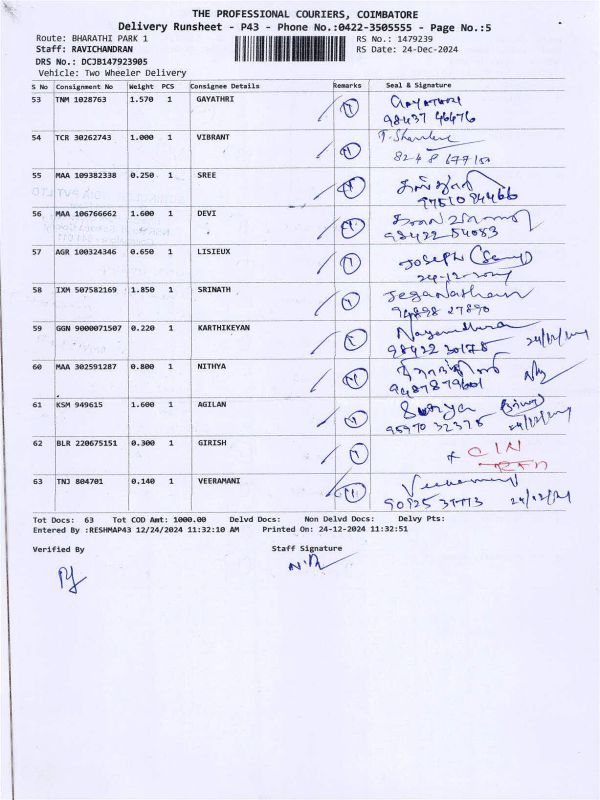 THE PROFESSIONAL COURIERS, COIMBATORE
Delivery Runsheet - P43 - Phone No.:0422-3505555 - Page No.:5
Route: BHARATHI PARK 1 RS No.: 1479239
Staff: RAVICHANDRAN RS Date: 24-Dec-2024
DRS No.: DCJB147923905
Vehicle: Two Wheeler Delivery
S No Consignment No Weight PCS Consignee Details Remarks Seal & Signature
53 TNM 1028763 1.570 1 GAYATHRI GAYATHRI
98437 46476
54 TCR 30262743 1.000 1 VIBRANT
55 MAA 109382338 0.250 1 SREE
97510 84466
56 MAA 106766662 1.600 1 DEVI
98422 54083
57 AGR 100324346 0.650 1 LISIEUX JOSEPH
24-12-2024
58 IXM 507582169 1.850 1 SRINATH Jeganathan
94898 27890
59 GGN 9000071507 0.220 1 KARTHIKEYAN
98422 30178 24/12/2024
60 MAA 302591287 0.800 1 NITHYA
9487879601
61 KSM 949615 1.600 1 AGILAN Surya
95970 32375 24/12/2024
62 BLR 220675151 0.300 1 GIRISH CIN
63 TNJ 804701 0.140 1 VEERAMANI Veeramani
24/12/24
Tot Docs: 63 Tot COD Amt: 1000.00 Delvd Docs: Non Delvd Docs: Delvy Pts:
Entered By :RESHMAP43 12/24/2024 11:32:10 AM Printed On: 24-12-2024 11:32:51
Verified By Staff Signature